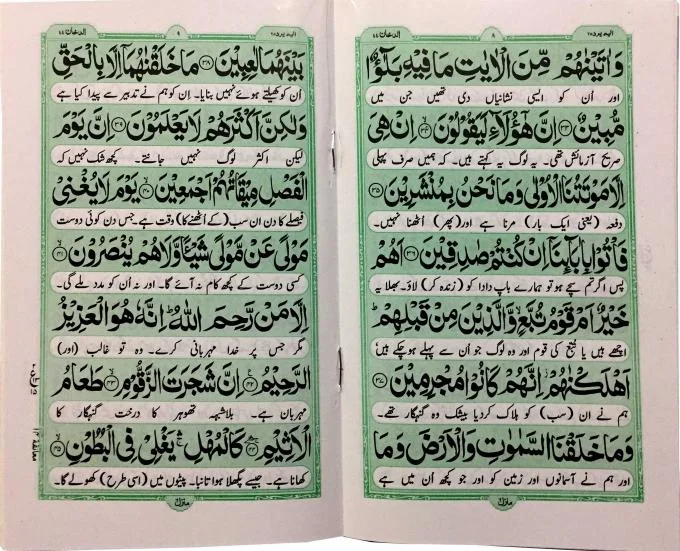 الیه یرد ۲۵
۸
الدخان ۴۴
وَاٰتَيْنٰهُمْ مِّنَ الْاٰيٰتِ مَا فِيْهِ بَلٰٓؤٌا
اور اُن کو ایسی نشانیاں دی تھیں جن میں
مُّبِيْنٌ ﴿۳۳﴾ اِنَّ هٰٓؤُلَآءِ لَيَقُوْلُوْنَ ﴿۳۴﴾ اِنْ هِىَ
صریح آزمائش تھی۔ یہ لوگ یہ کہتے ہیں۔ کہ ہمیں صرف پہلی
اِلَّا مَوْتَتُنَا الْاُوْلٰى وَمَا نَحْنُ بِمُنْشَرِيْنَ ﴿۳۵﴾
دفعہ (یعنی ایک بار) مرنا ہے اور (پھر) اُٹھنا نہیں۔
فَاْتُوْا بِاٰبَآئِنَآ اِنْ كُنْتُمْ صٰدِقِيْنَ ﴿۳۶﴾ اَهُمْ
پس اگر تم سچے ہو تو ہمارے باپ دادا کو (زندہ کر) لاؤ۔ بھلا یہ
خَيْرٌ اَمْ قَوْمُ تُبَّعٍ وَّالَّذِيْنَ مِنْ قَبْلِهِمْ ؕ
اچھے ہیں یا تُبّع کی قوم اور وہ لوگ جو اُن سے پہلے ہو چکے ہیں
اَهْلَكْنٰهُمْ اِنَّهُمْ كَانُوْا مُجْرِمِيْنَ ﴿۳۷﴾
ہم نے ان (سب) کو ہلاک کردیا بیشک وہ گنہگار تھے۔
وَمَا خَلَقْنَا السَّمٰوٰتِ وَالْاَرْضَ وَمَا
اور ہم نے آسمانوں اور زمین کو اور جو کچھ اُن میں ہے
منزل
الیه یرد ۲۵
۹
الدخان ۴۴
بَيْنَهُمَا لٰعِبِيْنَ ﴿۳۸﴾ مَا خَلَقْنٰهُمَآ اِلَّا بِالْحَقِّ
اُن کو کھیلتے ہوئے نہیں بنایا۔ اِن کو ہم نے تدبیر سے پیدا کیا ہے
وَلٰكِنَّ اَكْثَرَهُمْ لَا يَعْلَمُوْنَ ﴿۳۹﴾ اِنَّ يَوْمَ
لیکن اکثر لوگ نہیں جانتے۔ کچھ شک نہیں کہ
الْفَصْلِ مِيْقَاتُهُمْ اَجْمَعِيْنَ ﴿۴۰﴾ يَوْمَ لَا يُغْنِىْ
فیصلے کا دن ان سب (کے اُٹھنے کا) وقت ہے جس دن کوئی دوست
مَوْلًى عَنْ مَّوْلًى شَيْـًٔا وَّلَا هُمْ يُنْصَرُوْنَ ﴿۴۱﴾
کسی دوست کے کچھ کام نہ آئے گا۔ اور نہ اُن کو مدد ملے گی۔
اِلَّا مَنْ رَّحِمَ اللّٰهُ ؕ اِنَّهٗ هُوَ الْعَزِيْزُ
مگر جس پر خدا مہربانی کرے۔ وہ تو غالب (اور)
الرَّحِيْمُ ﴿۴۲﴾ اِنَّ شَجَرَتَ الزَّقُّوْمِ ﴿۴۳﴾ طَعَامُ
مہربان ہے۔ بلاشبہ تھوہر کا درخت گنہگار کا
الْاَثِيْمِ ﴿۴۴﴾ كَالْمُهْلِ ۚ يَغْلِىْ فِى الْبُطُوْنِ ﴿۴۵﴾
کھانا ہے۔ جیسے پگھلا ہوا تانبا۔ پیٹوں میں (اسی طرح) کھولے گا۔
منزل